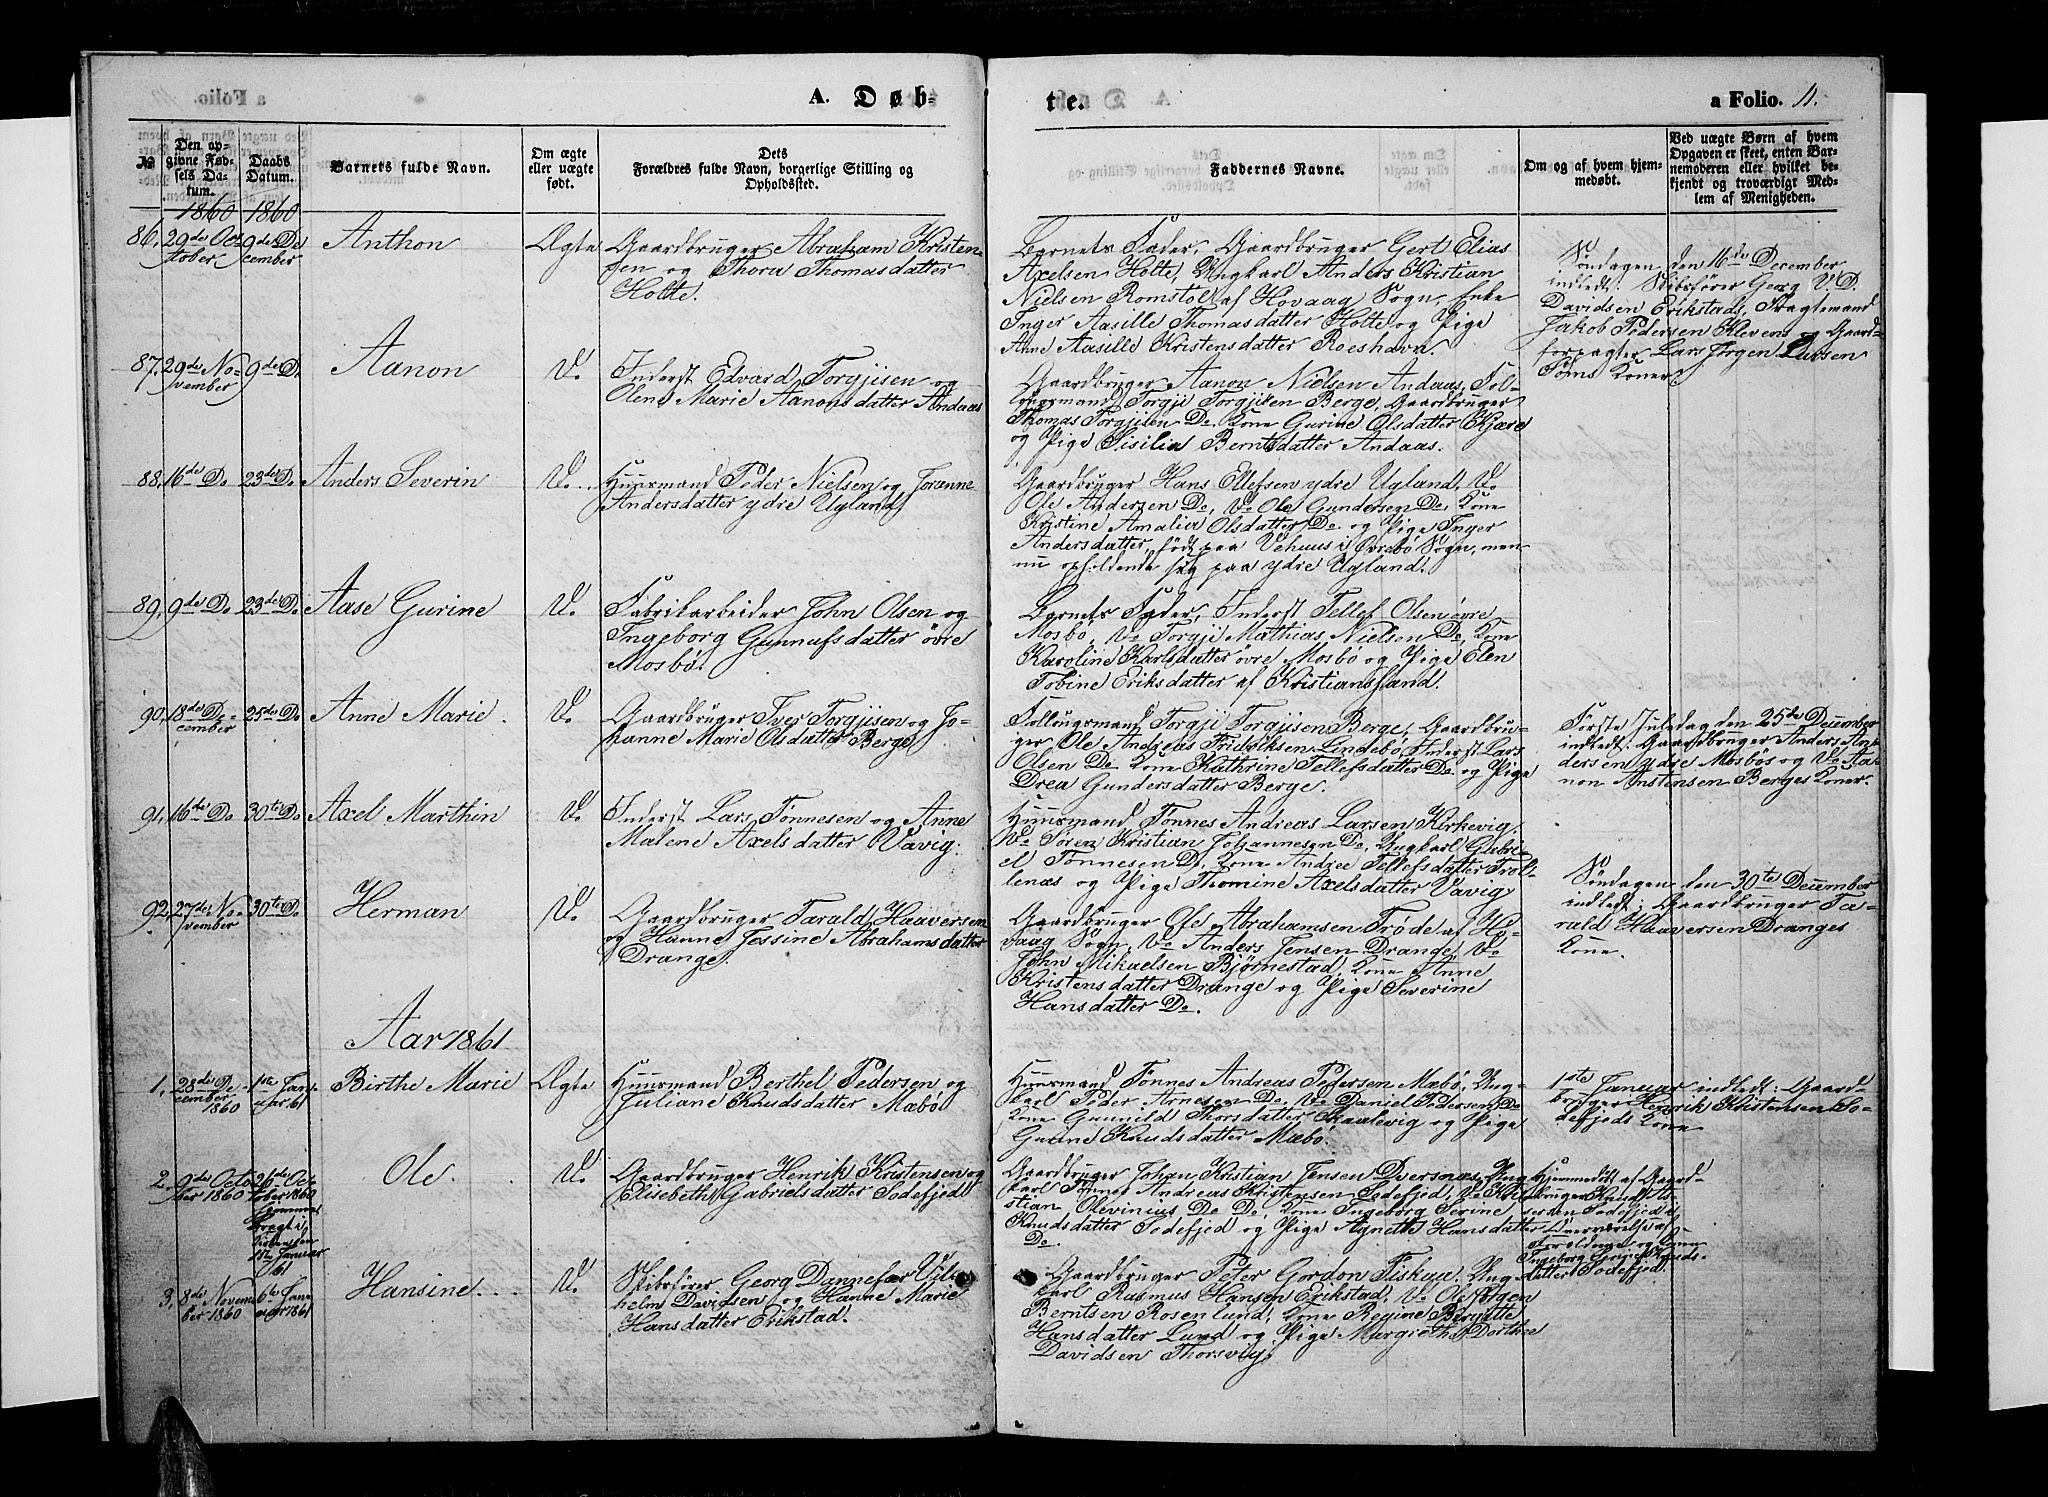 A. Døb-
te.
a Folio. 11.
№
Den op-
givne Fød-
sels Da-
tum.
1860
Daabs
Datum.
1860
Barnets fulde Navn.
Om ægte
eller uægte
født.
Dets
Forældres fulde Navn, borgerlige Stilling og
Opholdssted.
Faddernes Navne.
Om og af hvem hjem-
medøbt.
Ved uægte Børn af hvem
Opgaven er skeet, enten Bar-
nemoderen eller hvilket be-
kjendt og troværdigt Med-
lem af Menigheden.
86. 29de Oc-
tober
9de De-
cember
Anthon
Ægte
Gaardbruger Abraham Kristen-
sen og Thora Thomasdatter
Holte.
Barnets Fader, Gaardbruger Gert Elias
Axelsen Holte, Ungkarl Anders Kristian
Nielsen Romstøl af Høvaag Sogn, Enke
Inger Aasille Thomasdatter Holte og Pige
Anne Aasille Kristensdatter Roeshavn.
Søndagen den 16de December
indledt: Skibsfører Georg V. D.
Davidsen Erikstads, Fragtemand
Jakob Pedersen Klevens og Gaard-
forpagter Lars Jørgen Larsen
Søms Koner.
87. 29de No-
vember
9de D.
Aanon
D.
Inderst Edvard Torgjisen og
Olene Marie Aanonsdatter Andaas
Gaardbruger Aanon Nielsen Andaas, Fol-
lougsmand Torgji Torgjisen Berge, Gaardbruger
Thomas Torgjisen Do. Kone Gurine Olsdatter Kjære
og Pige Sisilia Berntsdatter Andaas.
88. 16de D.
23de D.
Anders Severin
D.
Huusmand Peder Nielsen og Joranne
Andersdatter ydre Ugland
Gaardbruger Hans Ellefsen ydre Ugland, Do
Ole Andersen Do, Do Ole Gundersen Do, Kone
Kristine Amalia Olsdatter Do. og Pige Inger
Andersdatter, født paa Vehuus i Øvrebø Sogn, men
nu opholdende sig paa ydre Ugland.
89. 9de D.
23de D.
Aase Gurine
D.
Fabrikarbeider John Olsen og
Ingeborg Gunnufsdatter øvre
Mosbø.
Barnets Fader, Inderst Tellef Olsen øvre
Mosbø, Do Torgji Mathias Nielsen Do, Kone
Karoline Karlsdatter øvre Mosbø og Pige Elen
Tobine Eriksdatter af Kristiansand.
90. 18de De-
cember
25de D.
Anne Marie.
D.
Gaardbruger Iver Torgjisen og Jo-
hanne Marie Olsdatter Berge
Follougsmand Torgji Torgjisen Berge, Gaardbru-
ger Ole Andreas Fridriksen Lindebø, Inderst Lars
Olsen Do. Kone Kathrine Tellefsdatter Do. og Pige
Drea Gundersdatter Berge.
Første Juledag den 25de December
indledt: Gaardbruger Anders An-
dersen ydre Mosbøs og Do Aa-
non Anstensen Berges Koner.
91. 16de D.
30te D.
Axel Marthin
D.
Inderst Lars Tønnesen og Anne
Malene Axelsdatter Vavig.
Huusmand Tønnes Andreas Larsen Kirkevig,
Do Søren Kristian Johannesen Do, Ungkarl Gabri-
el Tønnesen Do, Kone Andree Tellefsdatter Trol-
lenæs og Pige Thomine Axelsdatter Vavig.
92. 27de No-
vember
30te D.
Herman
D.
Gaardbruger Tarald Haaversen
og Hanne Jessine Abrahamsdatter
Drange.
Gaardbruger Ole Abrahamsen Trøde af Hø-
vaag Sogn, Do Anders Jensen Drange, Do
John Mikaelsen Bjørnestad, Kone Anne
Kristensdatter Drange og Pige Severine
Hansdatter Do.
Søndagen den 30te December
indledt: Gaardbruger Ta-
rald Haaversen Dranges
Kone.
Aar 1861
1. 28de De-
cember
1860
1ste Jan-
uar 61
Birthe Marie
Ægte
Huusmand Berthel Pedersen og
Juliane Knudsdatter Mæbø
Huusmand Tønnes Andreas Pedersen Mæbø, Ung-
karl Peder Arnesen Do, Do Daniel Pedersen Do
Kone Gunnild Thorsdatter Skaulevig og Pige
Gurine Knudsdatter Mæbø.
1ste Januar indledt: Gaard-
bruger Henrik Kristensen So-
defjeds Kone
2. 9de Octo-
ber 1860
26de Oct-
ober 1860
bragt i
Kirken
1ste Januar
61
Ole.
D.
Gaardbruger Henrik Kristensen og
Elisebeth Gabrielsdatter Sodefjed
Gaardbruger Johan Kristian Jensen Dversnæs, Ung-
karl Tønnes Andreas Kristensen Sodefjed, Do Kri-
stian Olevinius Do Do, Kone Ingeborg Serine
Knudsdatter Sodefjed og Pige Agnethe Hansdatter
Do.
Hjemmedøbt af Gaard-
bruger Knud
Sodefjed i
Overværelse af
Forældrene og Konen
Ingeborg Serine Knuds-
datter Sodefjed
3. 8de Novem-
ber 1860
6te Jan-
uar 1861
Hansine.
D.
Skibsfører Georg Dannefær Vil-
helm Davidsen og Hanne Marie
Hansdatter Erikstad.
Gaardbruger Peter Gordon Fiskaa, Ung-
karl Rasmus Hansen Erikstad, Do Ole Jørgen
Berntsen Rosenlund, Kone Regine Birgitte
Hansdatter Lund og Pige Margrethe Dorthea
Davidsen Thorsvig.